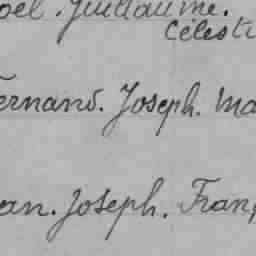 oel. Guillaume.
Célesti
ernand. Joseph. Ma
an. Joseph. Fran